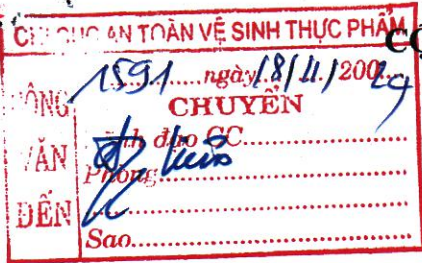 CHI CỤC AN TOÀN VỆ SINH THỰC PHẨM
CỘ
CÔNG VĂN ĐẾN
1591.....ngày 18/11/2024
CHUYỂN
Lãnh đạo CC
Phòng
Sao